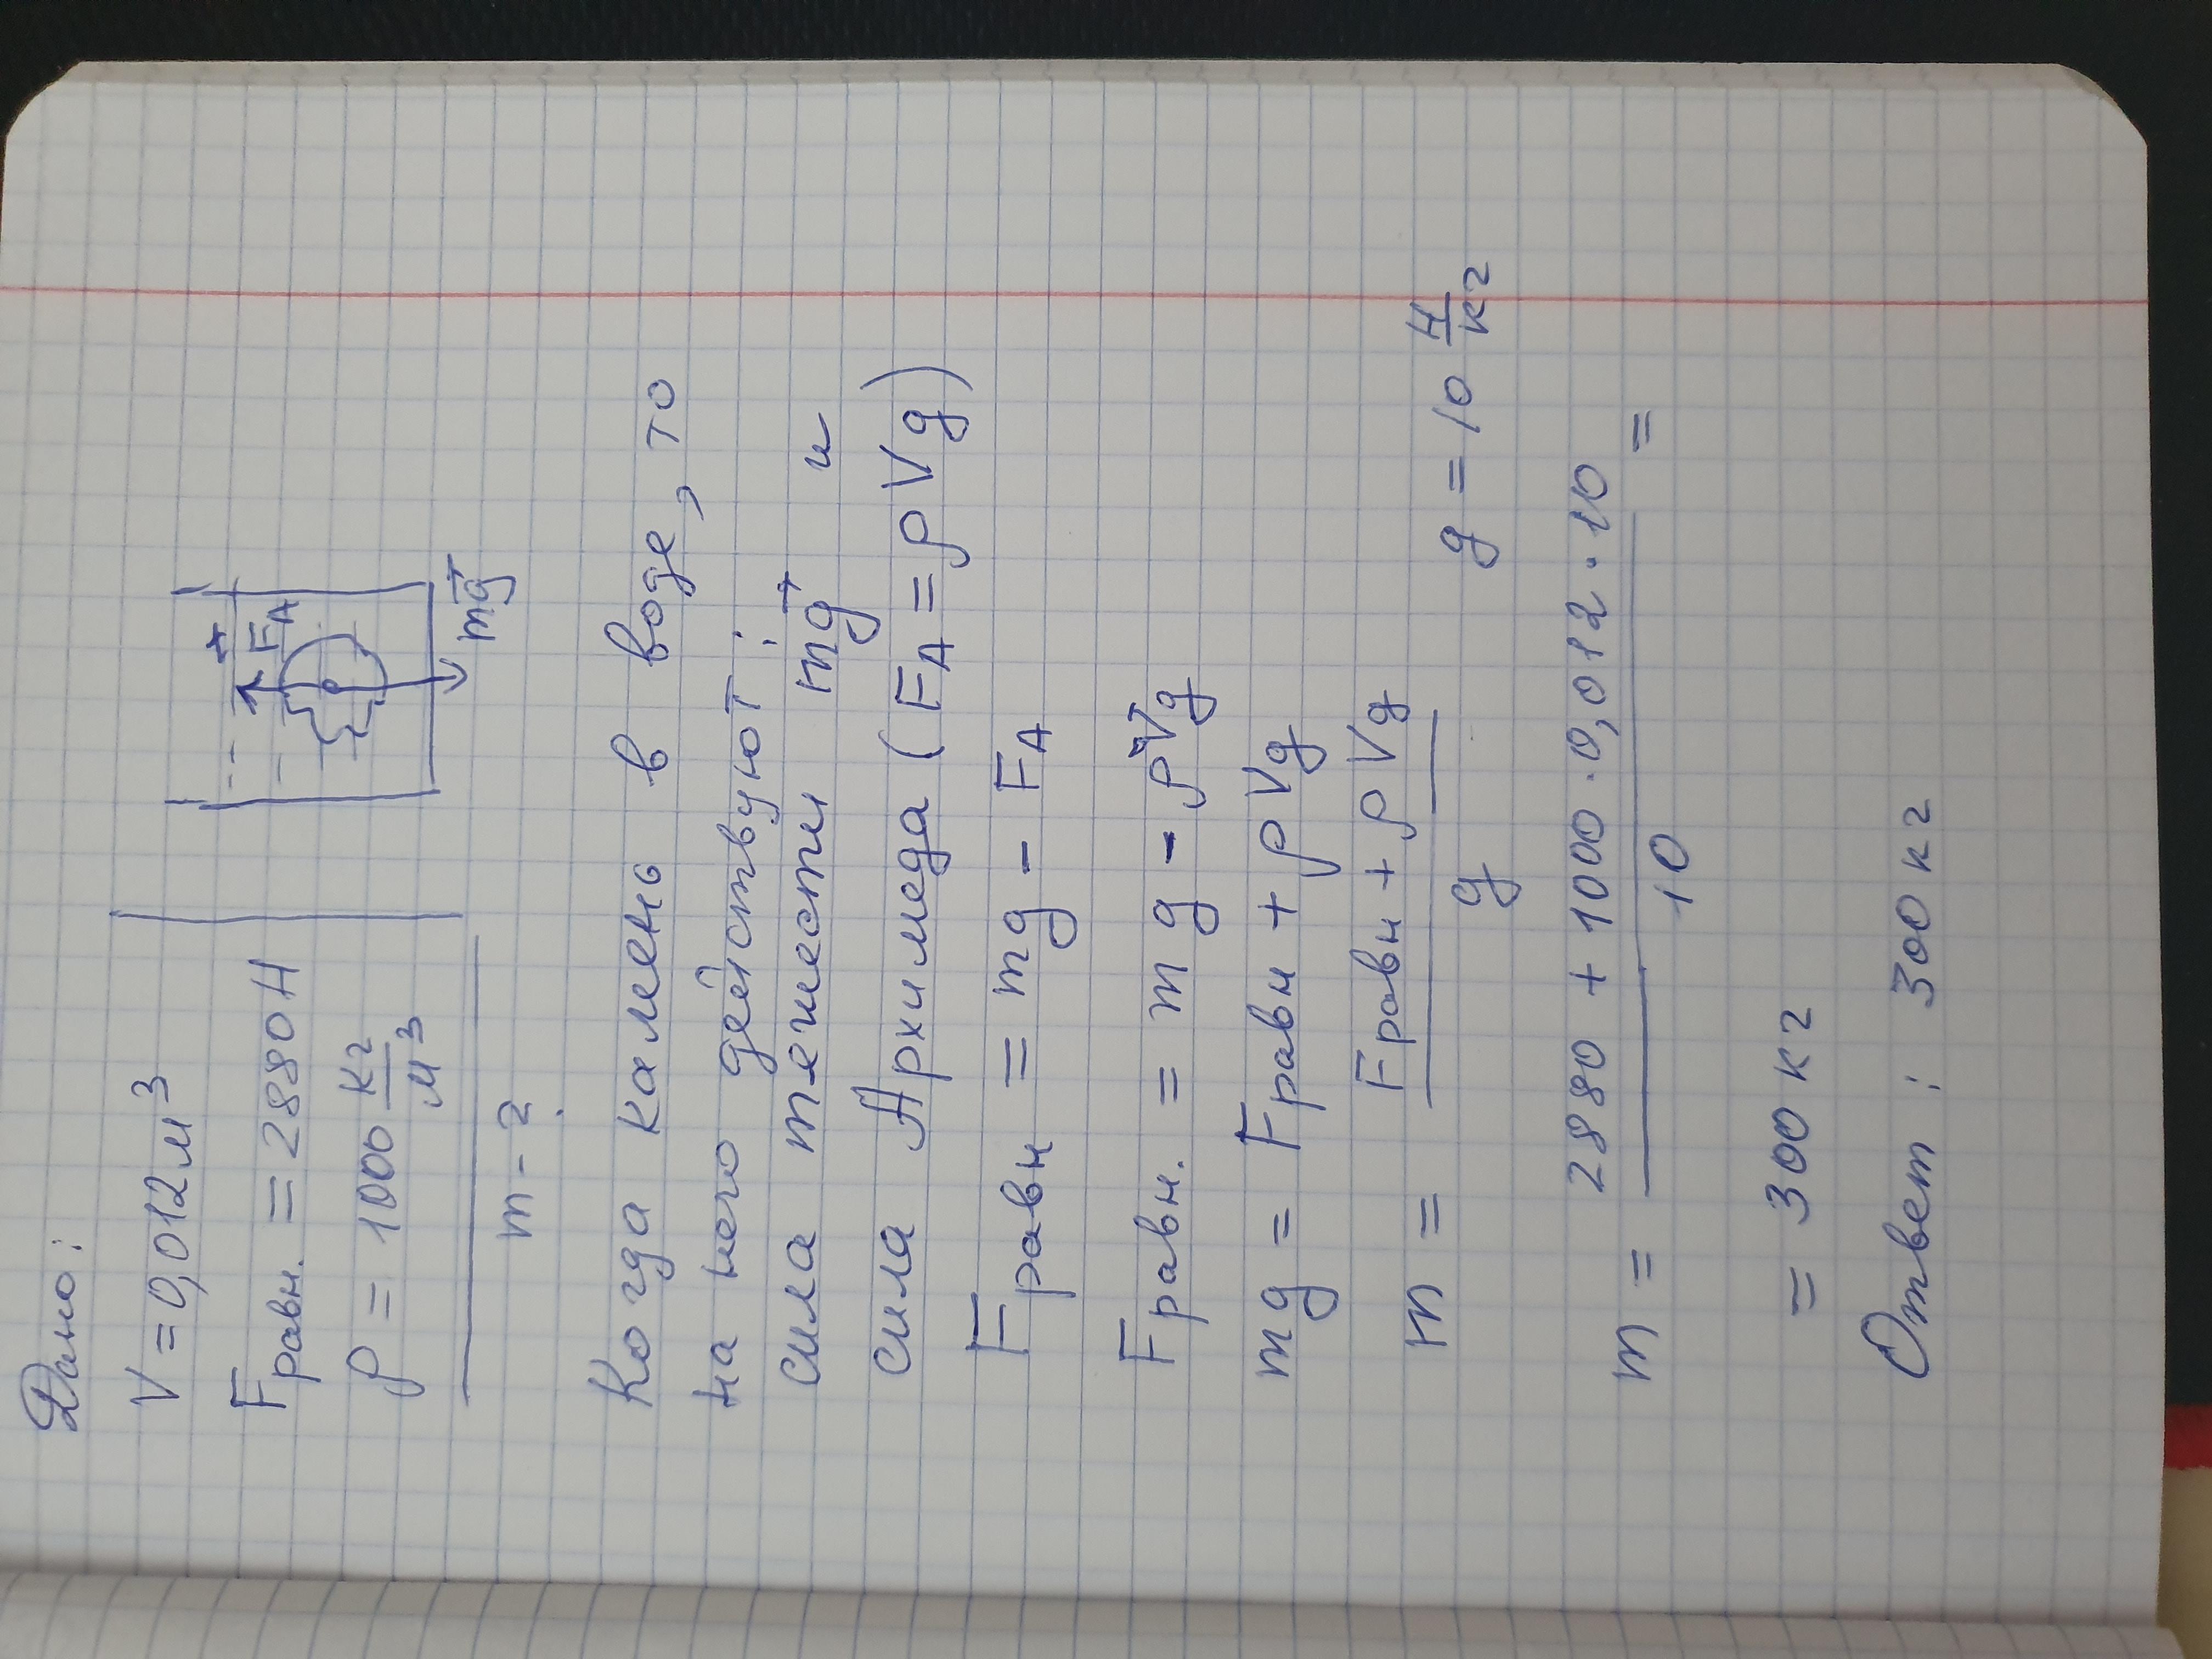 Дано:
V = 0,012 м³
Fравн. = 2880 Н
ρ = 1000 кг/м³
m - ?
F⃗A
mg⃗
Когда камень в воде, то
на него действуют:
сила тяжести mg⃗ и
сила Архимеда (FA = ρVg)
Fравн = mg - FA
Fравн. = mg - ρVg
mg = Fравн + ρVg
m = (Fравн + ρVg)/g
g = 10 Н/кг
m = (2880 + 1000 · 0,012 · 10)/10 =
= 300 кг
Ответ: 300 кг